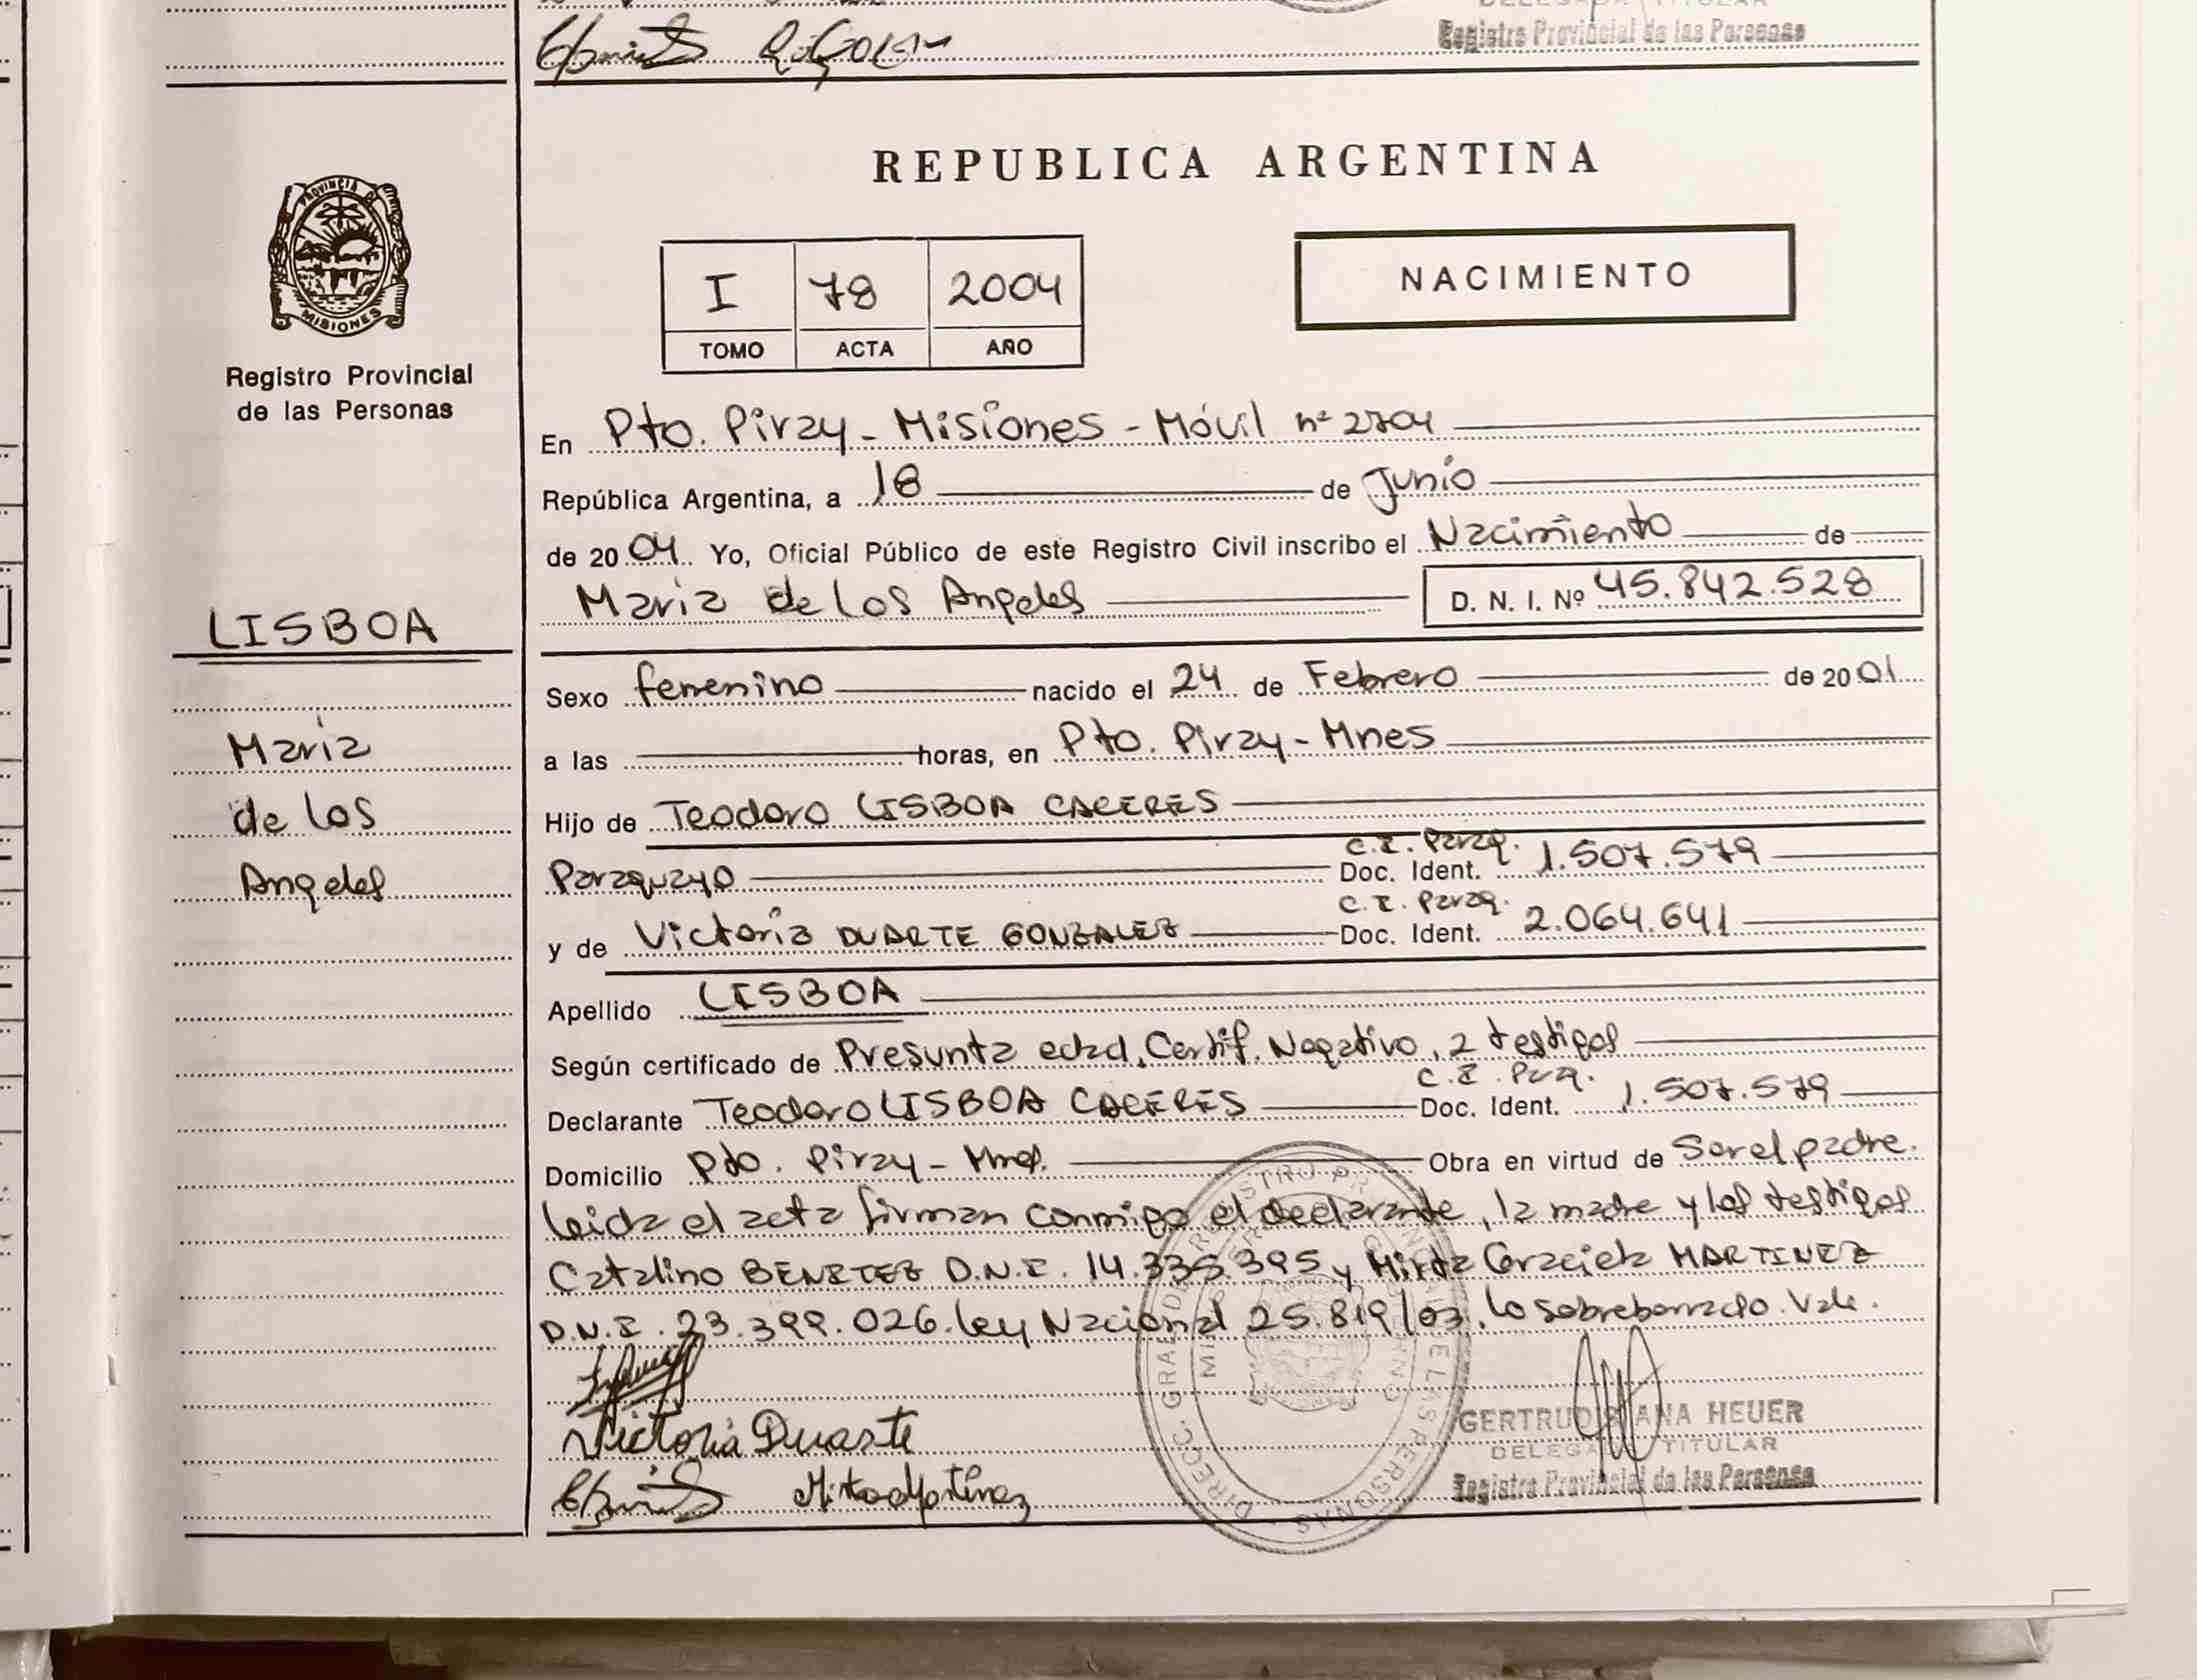 Registro Provincial de las Personas
REPUBLICA ARGENTINA
PROVINCIA DE
MISIONES
Registro Provincial
de las Personas
I 78 2004
TOMO ACTA AÑO
NACIMIENTO
En Pto. Piray - Misiones - Móvil nº 2704
República Argentina, a 18 de Junio
de 2004 Yo, Oficial Público de este Registro Civil inscribo el Nacimiento de
Maria de los Angeles D. N. I. Nº 45.842.528
LISBOA
Maria
de los
Angeles
Sexo femenino nacido el 24 de Febrero de 2001
a las horas, en Pto. Piray - Mnes
Hijo de Teodoro LISBOA CACERES
C.I. Parag.
Paraguayo Doc. Ident. 1.507.579
C.I. Parag.
y de Victoria DUARTE GONZALEZ Doc. Ident. 2.064.641
Apellido LISBOA
Según certificado de Presunta edad, Certif. Negativo, 2 testigos
C.I. Parag.
Declarante Teodoro LISBOA CACERES Doc. Ident. 1.507.579
Domicilio Pto. Piray - Mnes. Obra en virtud de Ser el padre.
Leida el acta firman conmigo el declarante, la madre y los testigos
Catalino BENITEZ D.N.I. 14.335.395 y Mirta Graciela MARTINEZ
D.N.I. 23.399.026. Ley Nacional 25.819/03. Lo sobreborrado. Vale.
Victoria Duarte
Mirta Martinez
GERTRUDIS ANA HEUER
DELEGADA TITULAR
Registro Provincial de las Personas